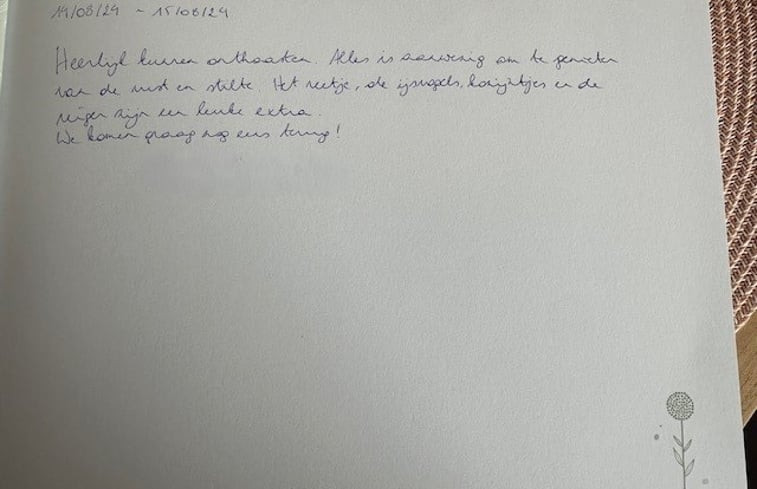 14/08/24 ~ 15/08/24
Heerlijk kunnen onthaasten. Alles is aanwezig om te genieten
van de rust en stilte. Het reetje, de ijsvogels, konijntjes en de
reiger zijn een leuke extra.
We komen graag nog eens terug!